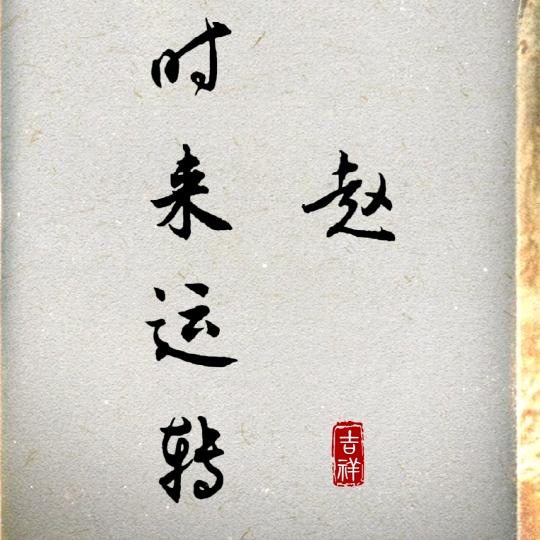 赵
时来运转
吉祥